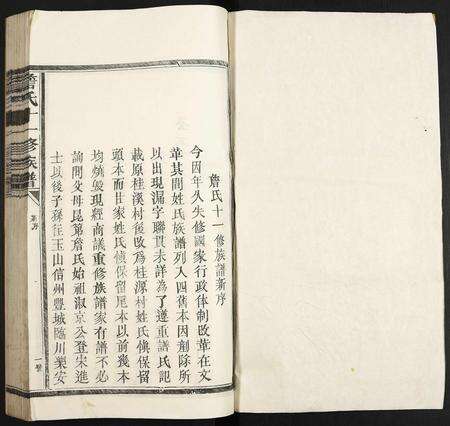 詹氏十一修族譜新序
今因年久失修國家行政体制改革在文
革其間姓氏族譜列入四舊本因剷除所
以出現漏字聯貫未詳為了遵重譜氏記
載原桂溪村後改為桂源村姓氏慎保留
頭本而廿家姓氏慎保留尾本以前幾本
均燒毀現經商議重修族譜家有譜不必
詢問父母昆第詹氏始祖淑京公登宋進
士以後子孫往玉山信州豐城臨川樂安
詹氏十一修族譜
新序
一